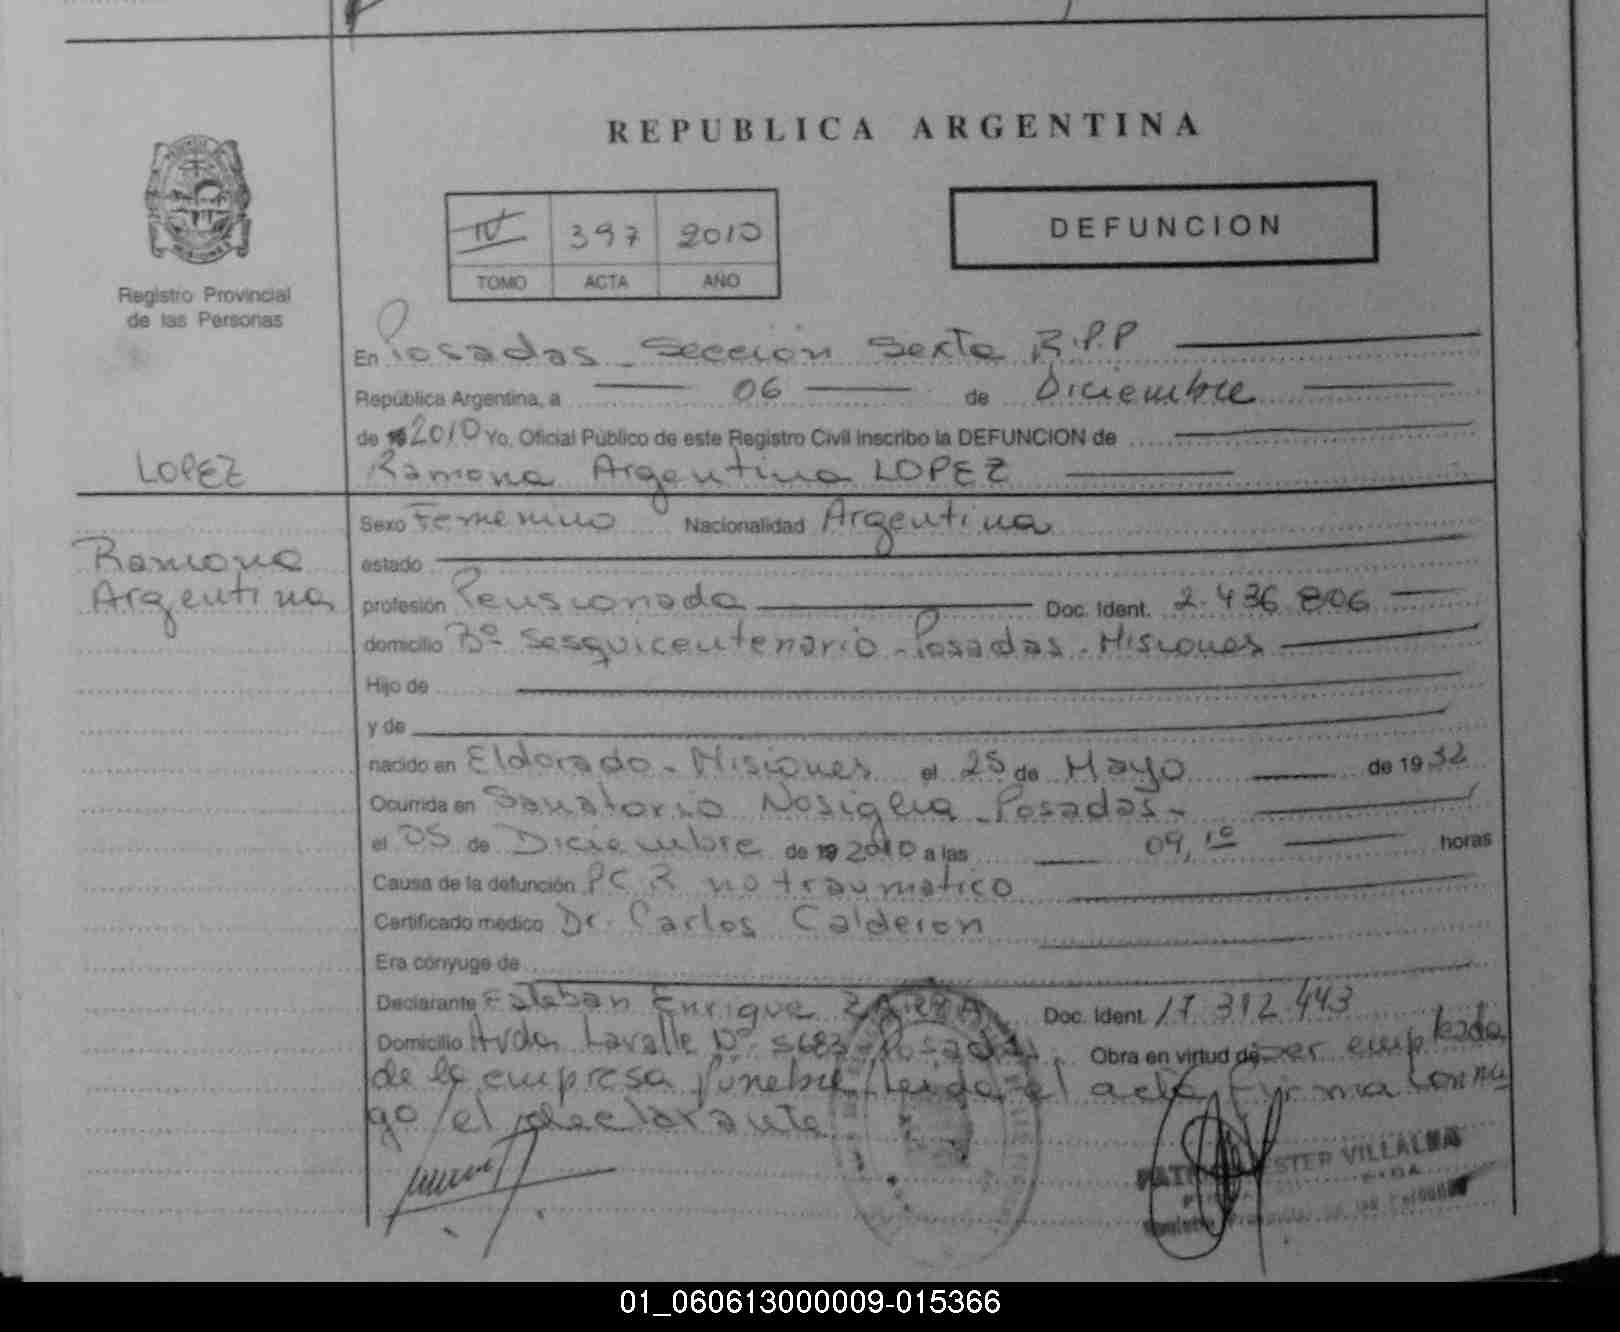 REPUBLICA ARGENTINA
IV 397 2010
TOMO ACTA AÑO
DEFUNCION
Registro Provincial
de las Personas
En Posadas - Sección Sexta R.P.P
República Argentina, a 06 de Diciembre
de 2010 Yo, Oficial Público de este Registro Civil inscribo la DEFUNCION de
LOPEZ
Ramona Argentina LOPEZ
Ramona
Argentina
Sexo Femenino Nacionalidad Argentina
estado
profesión Pensionada Doc. Ident. 2.436.806
domicilio Bº Sesquicentenario - Posadas - Misiones
Hijo de
y de
nacido en Eldorado - Misiones el 25 de Mayo de 1932
Ocurrida en Sanatorio Nosiglia - Posadas -
el 05 de Diciembre de 19 2010 a las 09,10 horas
Causa de la defunción PCR no traumatico
Certificado médico Dr. Carlos Calderon
Era cónyuge de
Declarante Esteban Enrique Doc. Ident. 17.312.443
Domicilio Avda Lavalle Nº 5683 - Posadas. Obra en virtud de ser empleado
de la empresa funebre leida el acta firma conmi
go el declarante
ESTER VILLALBA
01_060613000009-015366